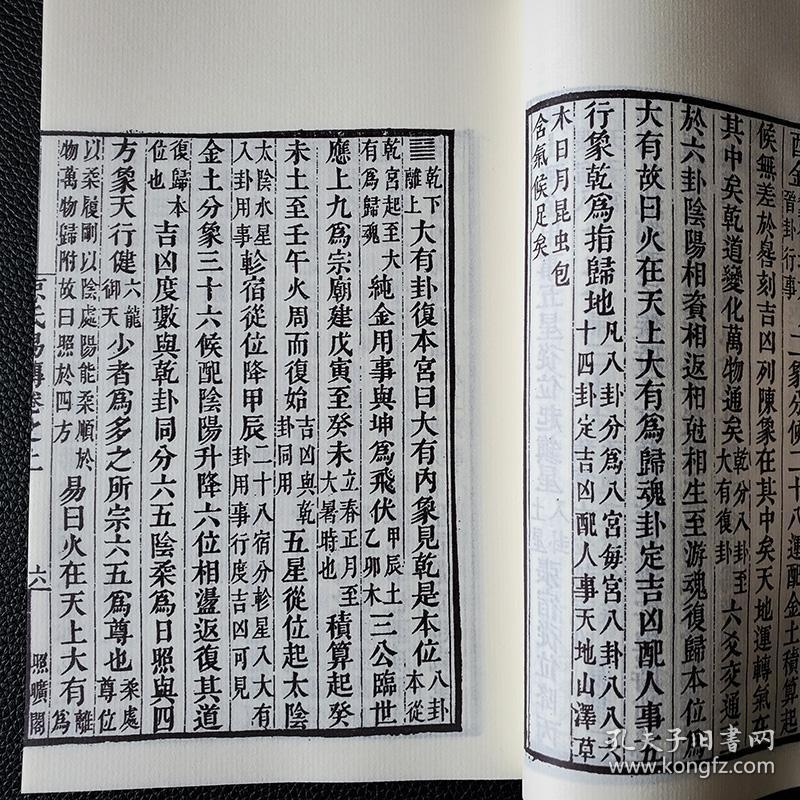 金晉卦行事二象分候二十八運配金土積算起
候無差於晷刻吉凶列陳象在其中矣天地運轉氣在
其中矣乾道變化萬物通矣乾分八卦至大有復卦六爻交通
於六卦陰陽相資相返相尅相生至游魂復歸本位爲
大有故曰火在天上大有爲歸魂卦定吉凶配人事五
行象乾爲指歸地凡八卦分爲八宮每宮八卦八八六十四卦定吉凶配人事天地山澤草
木日月昆虫包含氣候足矣
䷍乾下離上大有卦復本宮曰大有内象見乾是本位八卦本從
乾宮起至大有爲歸魂純金用事與坤爲飛伏甲辰土乙卯木三公臨世
應上九爲宗廟建戊寅至癸未立春正月至大暑時也積算起癸
未土至壬午火周而復始吉凶與乾卦同用五星從位起太陰
太陰水星入卦用事軫宿從位降甲辰二十八宿分軫星入大有卦用事行度吉凶可見
金土分象三十六候配陰陽升降六位相盪返復其道
復歸本位也吉凶度數與乾卦同分六五陰柔爲日照與四
方象天行健六龍御天少者爲多之所宗六五爲尊也柔處尊位
以柔履剛以陰處陽能柔順於物萬物歸附故曰照於四方易曰火在天上大有離爲
京氏易傳卷之上 六 照曠閣
孔夫子旧书网
www.kongfz.com